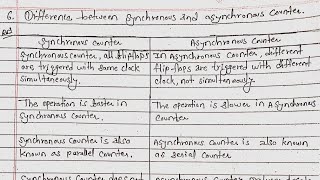 6. Difference between Synchronous and asynchronous counter.
Ans
Synchronous Counter
Asynchronous Counter
Synchronous counter, all flip flops
are triggered with same clock
simultaneously.
In Asynchronous Counter, different
flip-flops are triggered with different
clock, not simultaneously.
The operation is faster in
Synchronous Counter.
The operation is slower in Asynchronous
Counter
Synchronous Counter is also
known as parallel counter.
Asynchronous Counter is also known
as serial Counter
Synchronous Counter does not
Asynchronous Counter